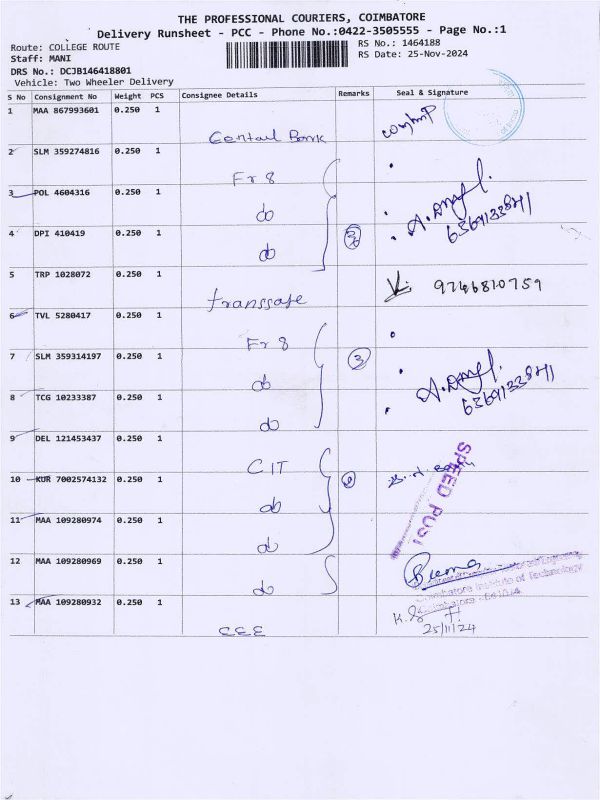 THE PROFESSIONAL COURIERS, COIMBATORE
Delivery Runsheet - PCC - Phone No.:0422-3505555 - Page No.:1
Route: COLLEGE ROUTE
RS No.: 1464188
Staff: MANI
RS Date: 25-Nov-2024
DRS No.: DCJB146418801
Vehicle: Two Wheeler Delivery
S No Consignment No Weight PCS Consignee Details Remarks Seal & Signature
1 MAA 867993601 0.250 1
2 SLM 359274816 0.250 1
Fr 8
3 POL 4604316 0.250 1
do
4 DPI 410419 0.250 1
do
6369133841
5 TRP 1028072 0.250 1
transsafe
9746810759
6 TVL 5280417 0.250 1
Fr 8
7 SLM 359314197 0.250 1
do 3
8 TCG 10233387 0.250 1
do
6369133841
9 DEL 121453437 0.250 1
CIT
10 KUR 7002574132 0.250 1
do
SPEED POST
11 MAA 109280974 0.250 1
do
12 MAA 109280969 0.250 1
do
Coimbatore Institute of Technology
13 MAA 109280932 0.250 1
CEE
25/11/24